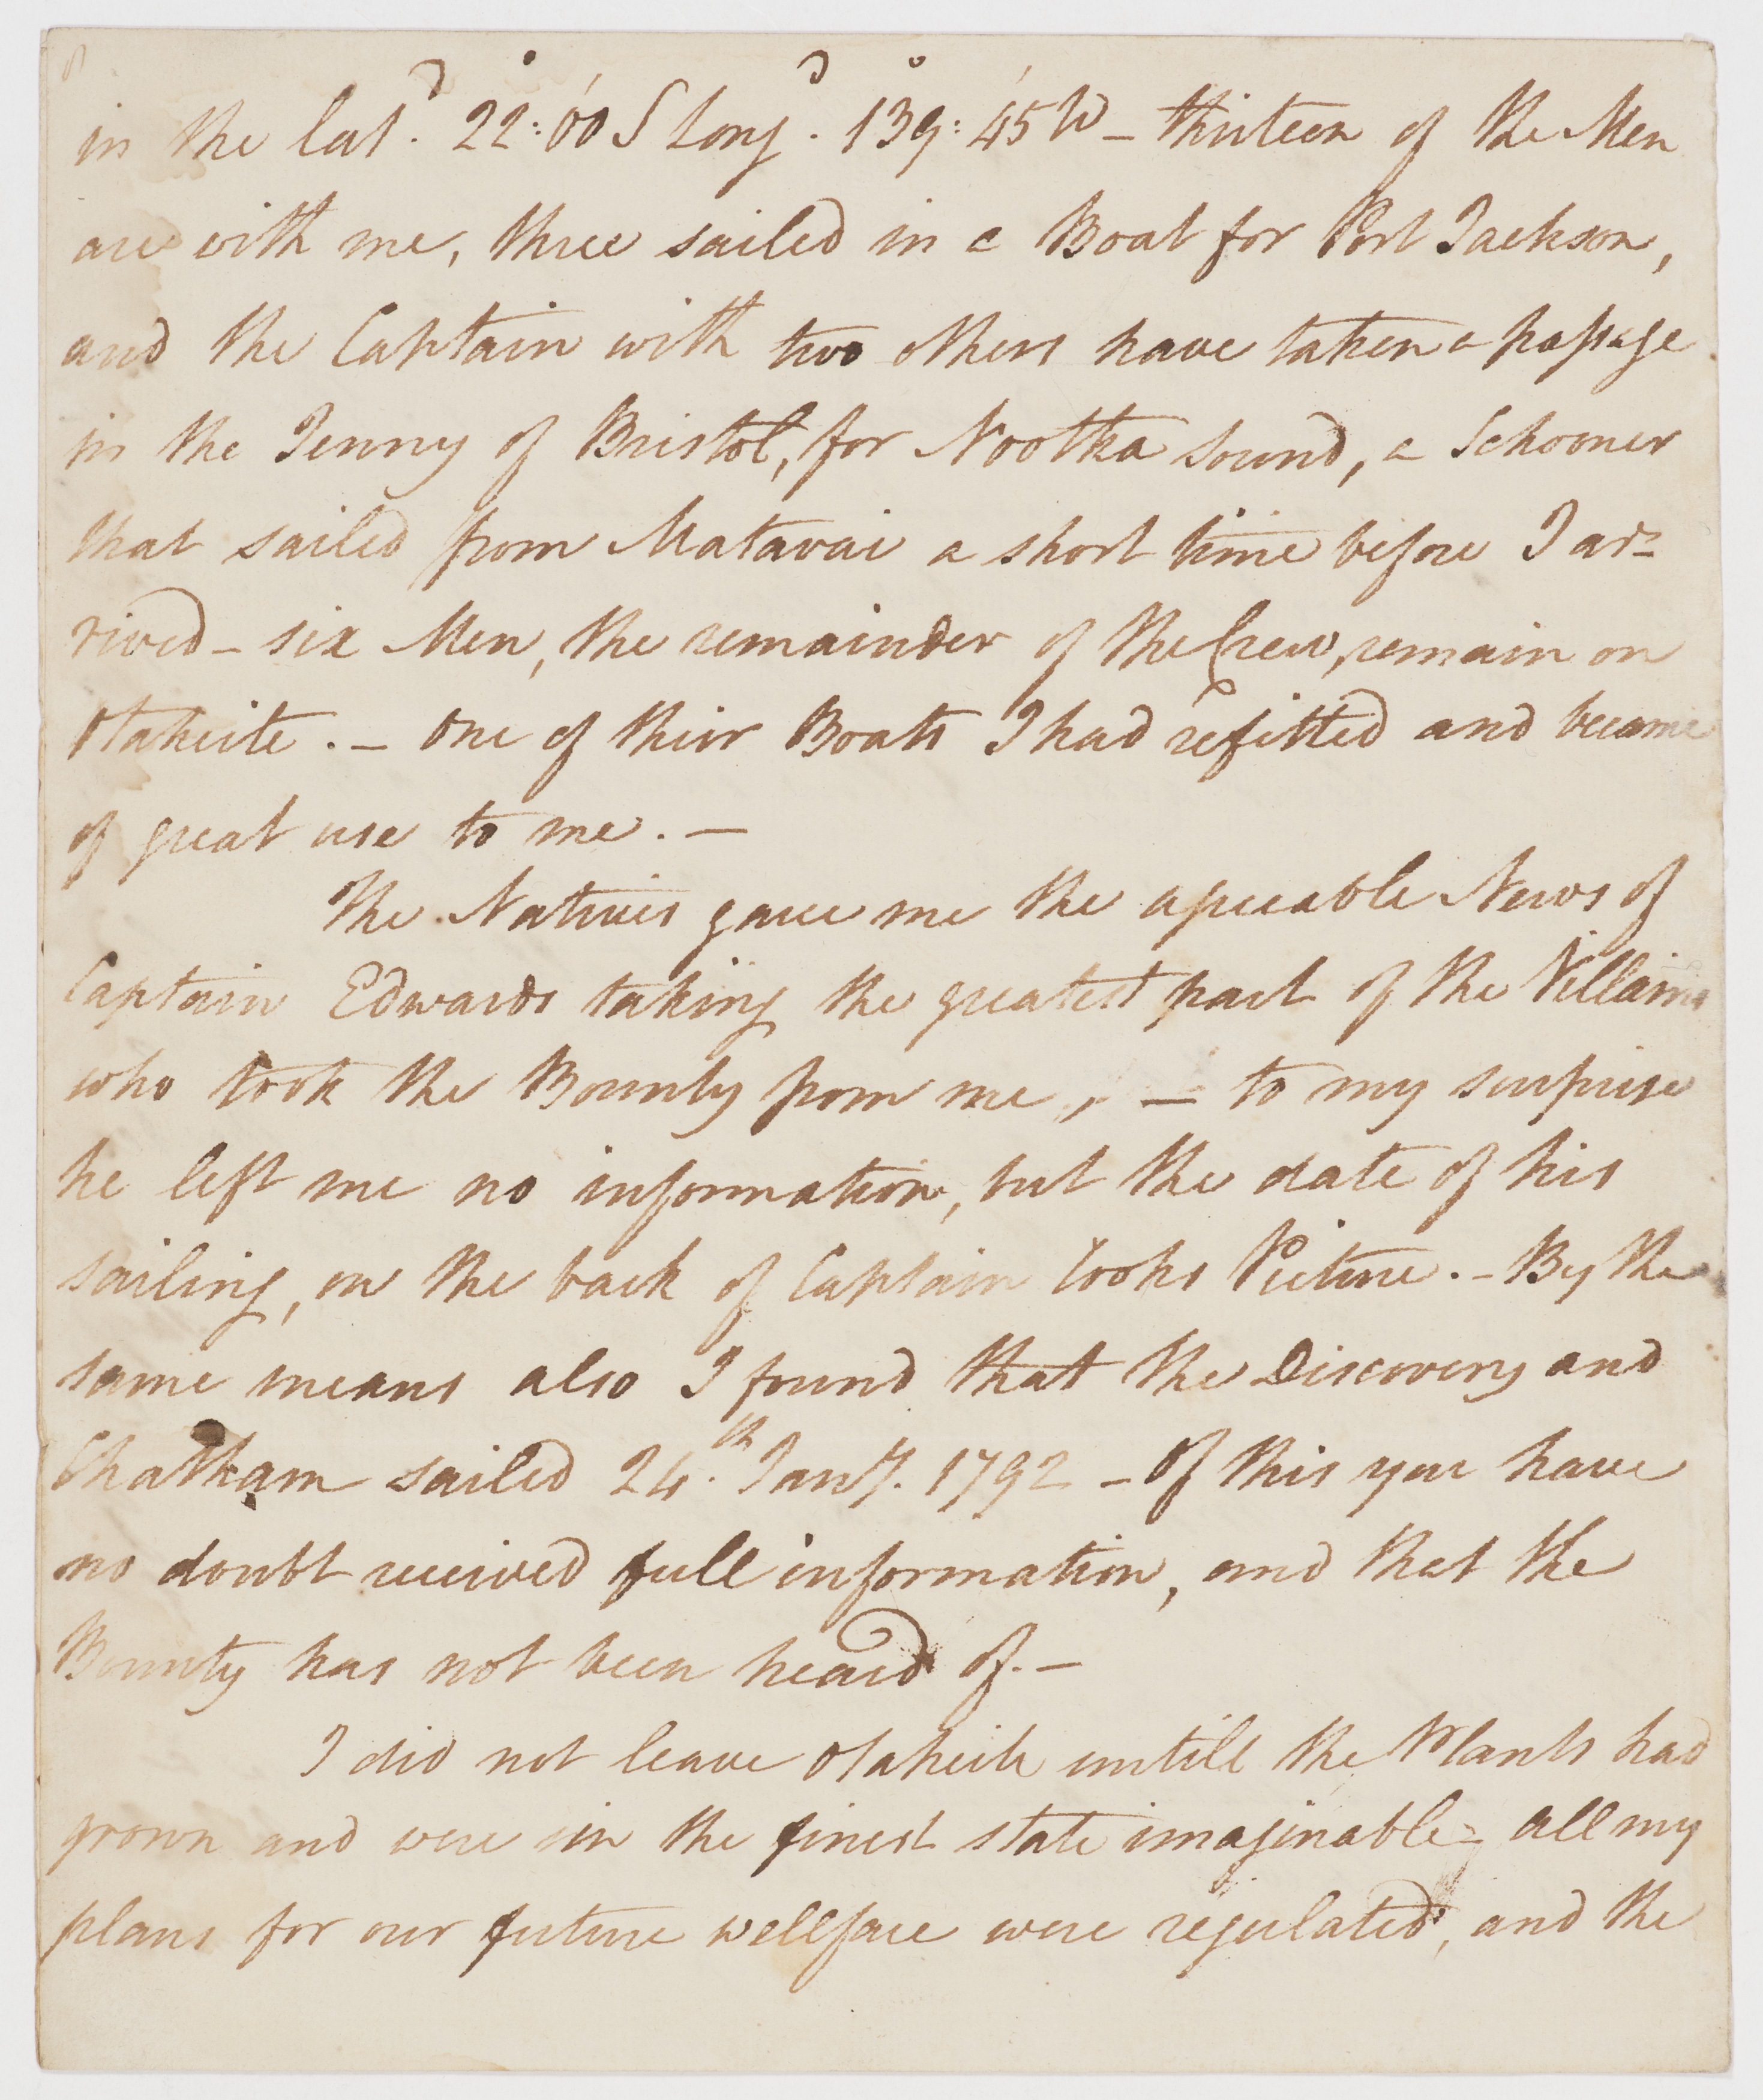 in the lat.d 22°:00' S Long.d 139°:45' W – thirteen of the Men
are with me, three sailed in a Boat for Port Jackson,
and the Captain with two others have taken a passage
in the Jenny of Bristol, for Nootka Sound, a Schooner
that sailed from Matavai a short time before I ar-
rived – six Men, the remainder of the Crew, remain on
Otaheite. – One of their Boats I had refitted and became
of great use to me. –
The Natives gave me the agreeable News of
Captain Edwards taking the greatest part of the Villains
who took the Bounty from me, – to my surprise
he left me no information, but the date of his
sailing, on the back of Captain Cooks Picture. – By the
same means also I found that the Discovery and
Chatham sailed 24.th Jany. 1792 – Of this you have
no doubt received full information, and that the
Bounty has not been heard of. –
I did not leave Otaheite untill the Plants had
grown and were in the finest state imaginable – all my
plans for our future wellfare were regulated, and the